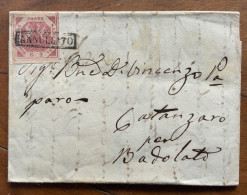 ANNULLATO
Sig.r Bne D. Vincenzo Pa
paro
Catanzaro
per
Badolato